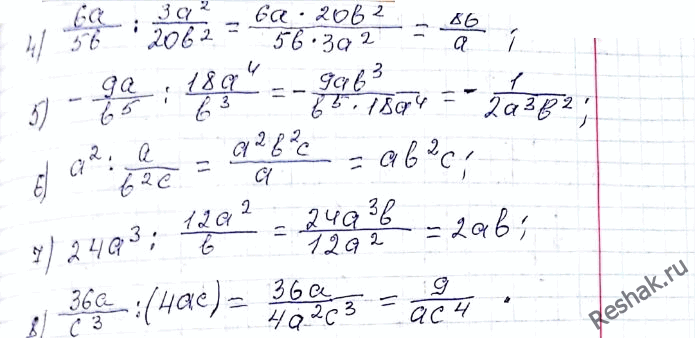 4) 6a/5b : 3a²/20b² = 6a · 20b²/5b · 3a² = 8b/a ;
5) - 9a/b⁵ : 18a⁴/b³ = - 9ab³/b⁵ · 18a⁴ = - 1/2a³b² ;
6) a² : a/b²c = a²b²c/a = ab²c ;
7) 24a³ : 12a²/b = 24a³b/12a² = 2ab ;
8) 36a/c³ : (4ac) = 36a/4a²c³ = 9/ac⁴ .
Reshak.ru